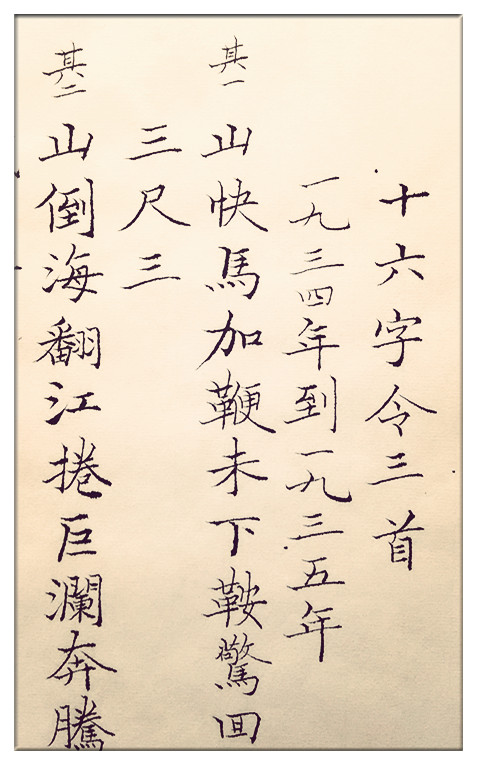 十六字令三首
一九三四年到一九三五年
其一
山快馬加鞭未下鞍驚回
三尺三
其二
山倒海翻江捲巨瀾奔騰